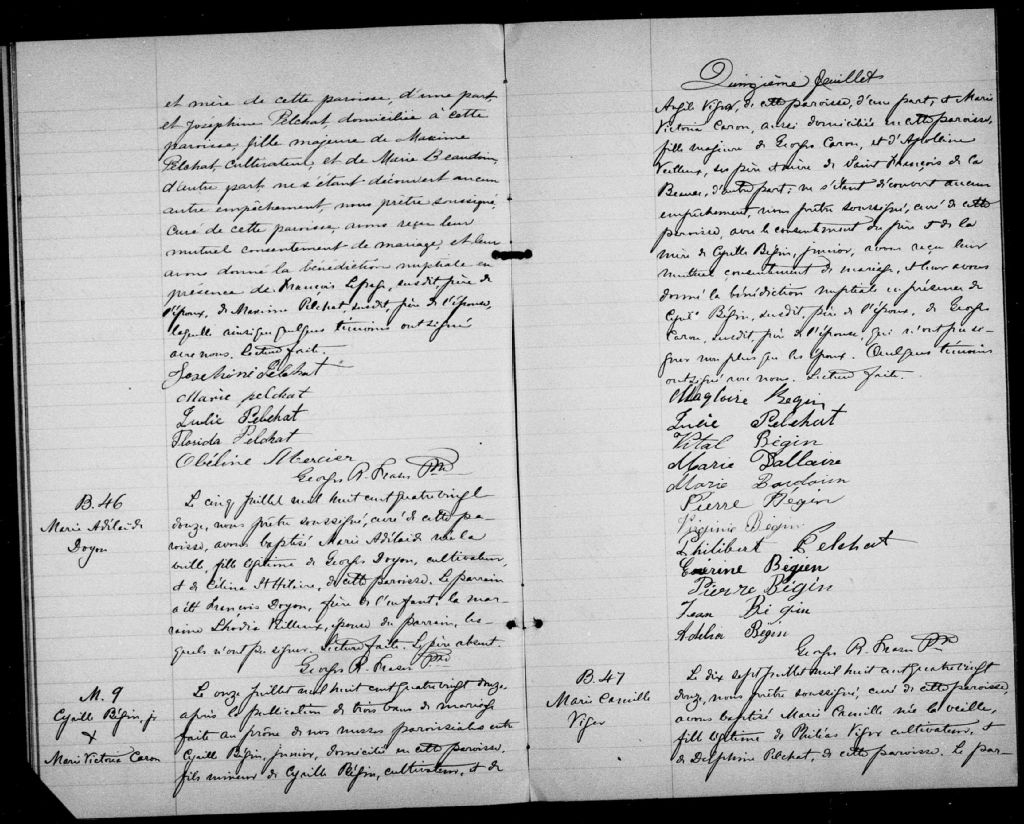 et mère de cette paroisse, d'une part,
et Joséphine Pelchat, domiciliée à cette
paroisse, fille majeure de Maxime
Pelchat, cultivateur, et de Marie Beaudoin,
d'autre part; ne s'étant découvert aucun
autre empêchement, nous prêtre soussigné,
curé de cette paroisse, avons reçu leur
mutuel consentement de mariage, et leur
avons donné la bénédiction nuptiale en
présence de François Lepage, susdit, père de
l'époux, de Maxime Pelchat, susdit, père de l'épouse,
laquelle ainsi que quelques témoins ont signé
avec nous. Lecture faite.
Josephine Pelchat
Marie Pelchat
Julie Pelchat
Florida Pelchat
Obéline Mercier
Georges R. Fraser Ptre
B. 46
Marie Adélaide
Doyon
Le cinq juillet mil huit cent quatre vingt
douze, nous prêtre soussigné, curé de cette pa-
roisse, avons baptisé Marie Adélaide née la
veille, fille légitime de Georges Doyon, cultivateur,
et de Célina St Hilaire, de cette paroisse. Le parrain
a été François Doyon, frère de l'enfant; la mar-
raine Veilleux, épouse du parrain, les-
quels n'ont pu signer. Lecture faite. Le père absent.
Georges R. Fraser Ptre
M. 9
Cyrille Bégin, jr
X
Marie Victoria Caron
Le onze juillet mil huit cent quatre vingt douze,
après la publication de trois bans de mariage
faite au prône de nos messes paroissiales entre
Cyrille Bégin, junior, domicilié en cette paroisse,
fils mineur de Cyrille Bégin, cultivateur, et de
Quinzième feuillet
Viger, de cette paroisse, d'une part, et Marie
Victoria Caron, aussi domiciliée en cette paroisse,
fille majeure de Georges Caron, et d'Apolline
Veilleux, ses père et mère de Saint François de la
Beauce, d'autre part; ne s'étant découvert aucun
empêchement, nous prêtre soussigné, curé de cette
paroisse, avec le consentement du père et de la
mère de Cyrille Bégin, junior, avons reçu leur
mutuel consentement de mariage, et leur avons
donné la bénédiction nuptiale en présence de
Cyrille Bégin, susdit, père de l'époux, de Georges
Caron, susdit, père de l'épouse, qui n'ont pu si-
gner non plus que les époux. Quelques témoins
ont signé avec nous. Lecture faite.
Magloire Begin
Julie Pelchat
Vital Bégin
Marie Dallaire
Marie Baudoin
Pierre Bégin
Virginie Begin
Philibert Pelchat
Bégien
Pierre Bégin
Jean Bégin
Adélia Bégin
Georges R. Fraser Ptre
B. 47
Marie Camille
Viger
Le dix sept juillet mil huit cent quatre vingt
douze, nous prêtre soussigné, curé de cette paroisse,
avons baptisé Marie Camille née la veille,
fille légitime de Philias Viger cultivateur, et
de Delphine Pelchat, de cette paroisse. Le par-